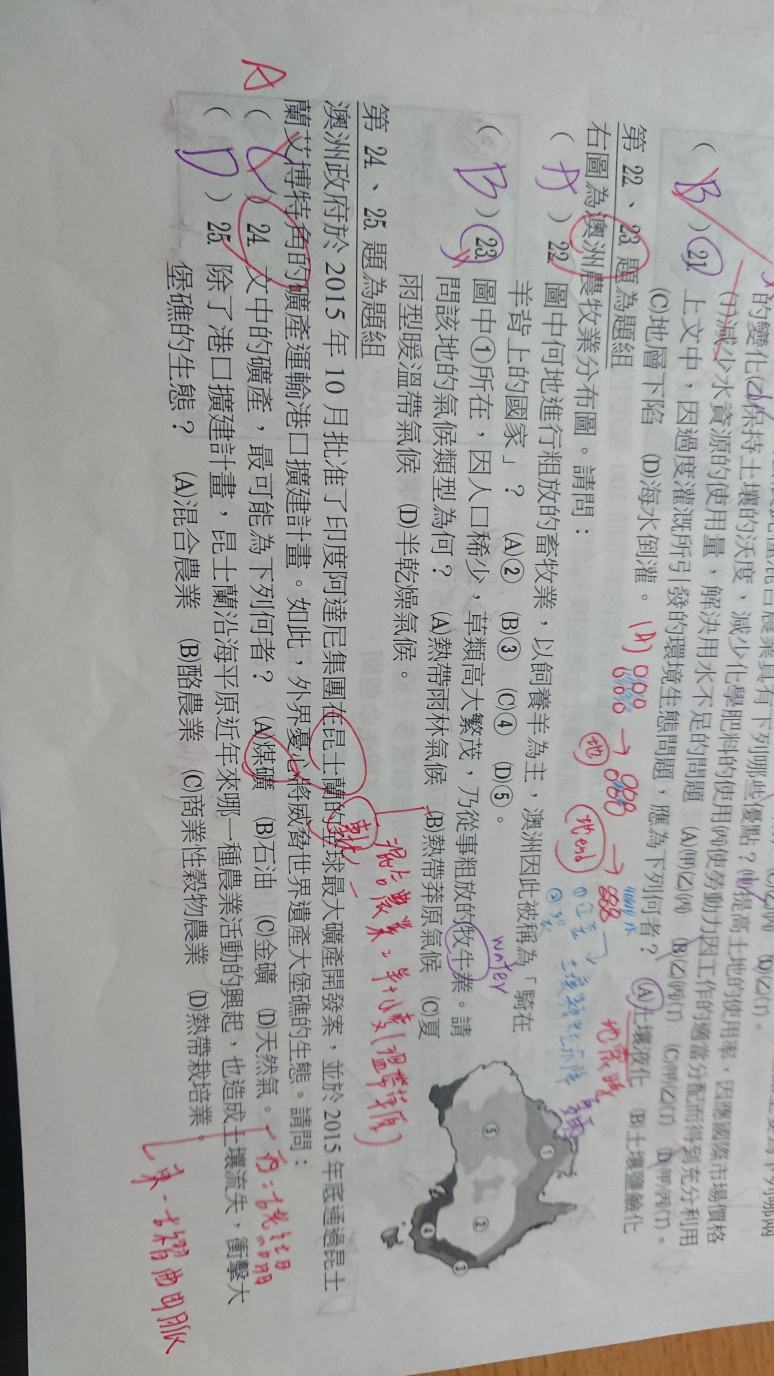 的變化(乙)保持土壤的沃度,減少化學肥料的使用(丙)使勞動力因工作的適當分配而得到充分利用
(丁)減少水資源的使用量,解決用水不足的問題 (A)(甲)(乙)(丙) (B)(乙)(丙)(丁) (C)(甲)(乙)(丁) (D)(甲)(丙)(丁)。
( B ) 21. 上文中,因過度灌溉所引發的環境生態問題,應為下列何者? (A)土壤液化 (B)土壤鹽鹼化
(C)地層下陷 (D)海水倒灌。
地震時
第 22、23 題為題組
右圖為澳洲農牧業分布圖。請問:
( A ) 22. 圖中何地進行粗放的畜牧業,以飼養羊為主,澳洲因此被稱為「騎在
羊背上的國家」? (A)② (B)③ (C)④ (D)⑤。
water
( B ) 23. 圖中①所在,因人口稀少,草類高大繁茂,乃從事粗放的牧牛業。請
問該地的氣候類型為何? (A)熱帶雨林氣候 (B)熱帶莽原氣候 (C)夏
雨型暖溫帶氣候 (D)半乾燥氣候。
① ② ③ ④ ⑤
第 24、25 題為題組
澳洲政府於 2015 年 10 月批准了印度阿達尼集團在昆士蘭的全球最大礦產開發案,並於 2015 年底通過昆士
蘭艾博特角的礦產運輸港口擴建計畫。如此,外界憂心將威脅世界遺產大堡礁的生態。請問:
A
( ) 24. 文中的礦產,最可能為下列何者? (A)煤礦 (B)石油 (C)金礦 (D)天然氣。
( D ) 25. 除了港口擴建計畫,昆士蘭沿海平原近年來哪一種農業活動的興起,也造成土壤流失,衝擊大
堡礁的生態? (A)混合農業 (B)酪農業 (C)商業性穀物農業 (D)熱帶栽培業。